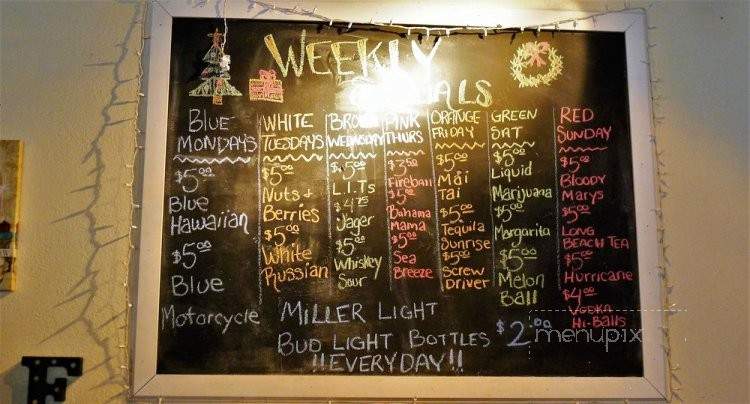 WEEKLY
BLUE
MONDAYS
$5.00
Blue
Hawaiian
$5.00
Blue
Motorcycle
WHITE
TUESDAYS
$5.00
Nuts +
Berries
$5.00
White
Russian
WEDNESDAY
$5.00
L.I.Ts
$4.75
Jager
$5.00
Whiskey
Sour
PINK
THURS
$3.50
Fireball
$5.00
Bahama
Mama
$5.00
Sea
Breeze
ORANGE
FRIDAY
$5.00
Mai
Tai
$5.00
Tequila
Sunrise
$5.00
Screw
Driver
GREEN
SAT
$5.00
Liquid
Marijuana
$5.00
Margarita
$5.00
Melon
Ball
RED
SUNDAY
$5.00
Bloody
Marys
$5.00
LONG
BEACH TEA
$5.00
Hurricane
$4.00
VODKA
Hi-Balls
MILLER LIGHT
BUD LIGHT BOTTLES $2.00
!!EVERYDAY!!
menupix
F